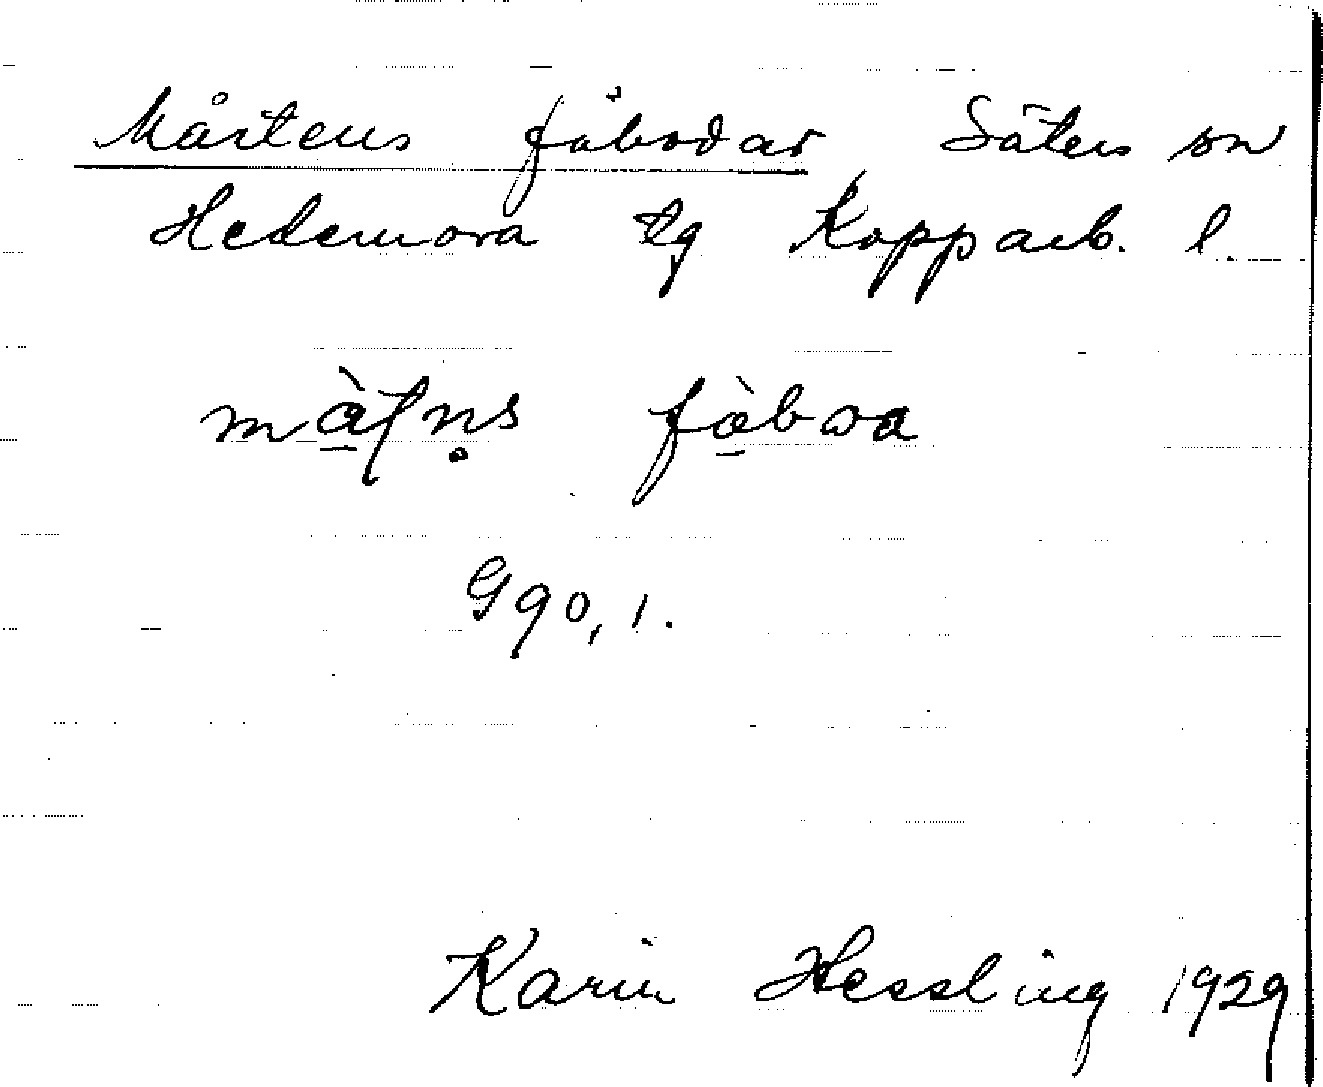 Mårtens fäbodar Säters sn
Hedemora tg Kopparb. l.
mą̀ʃṇs fą̀bωa
G90, 1.
Karin Hessling 1929